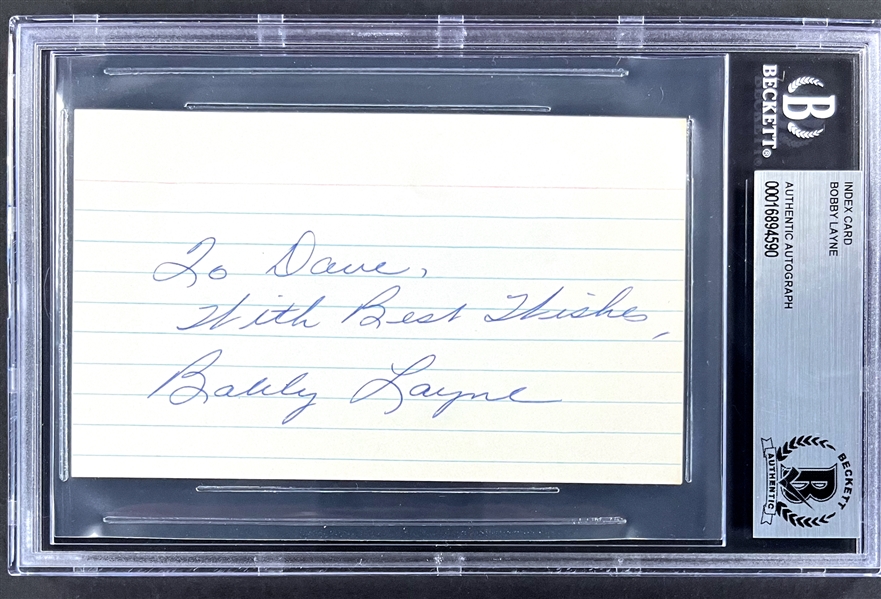 To Dave,
With Best Wishes,
Bobby Layne
B
BECKETT®
INDEX CARD
BOBBY LAYNE
AUTHENTIC AUTOGRAPH
00016894590
BECKETT
AUTHENTIC
B